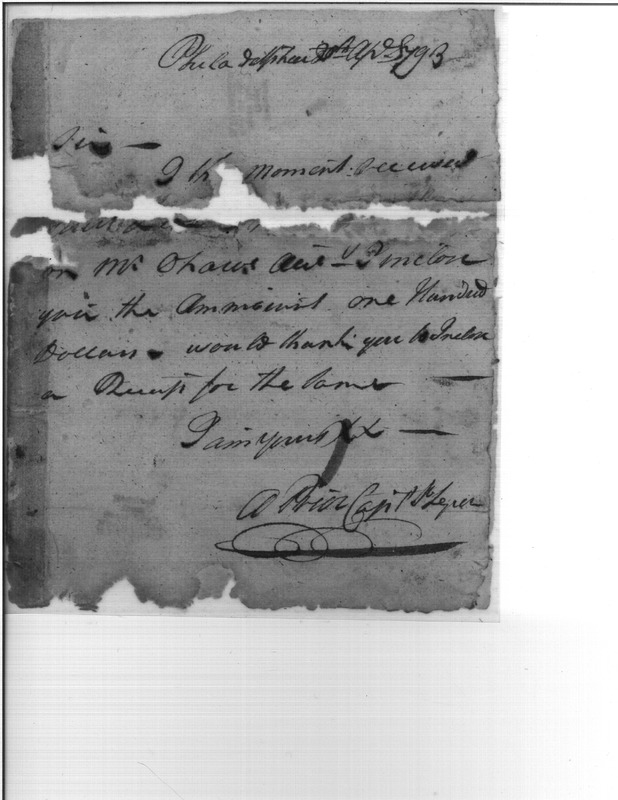 Philadelphia 20th Apl 1793
Sir —
I th moment received
on Mr Shaws
you the Ammount one Hundred
Dollars - would thank you to Inclose
a Receipt for the same —
I am yours &&
A Prior Capt